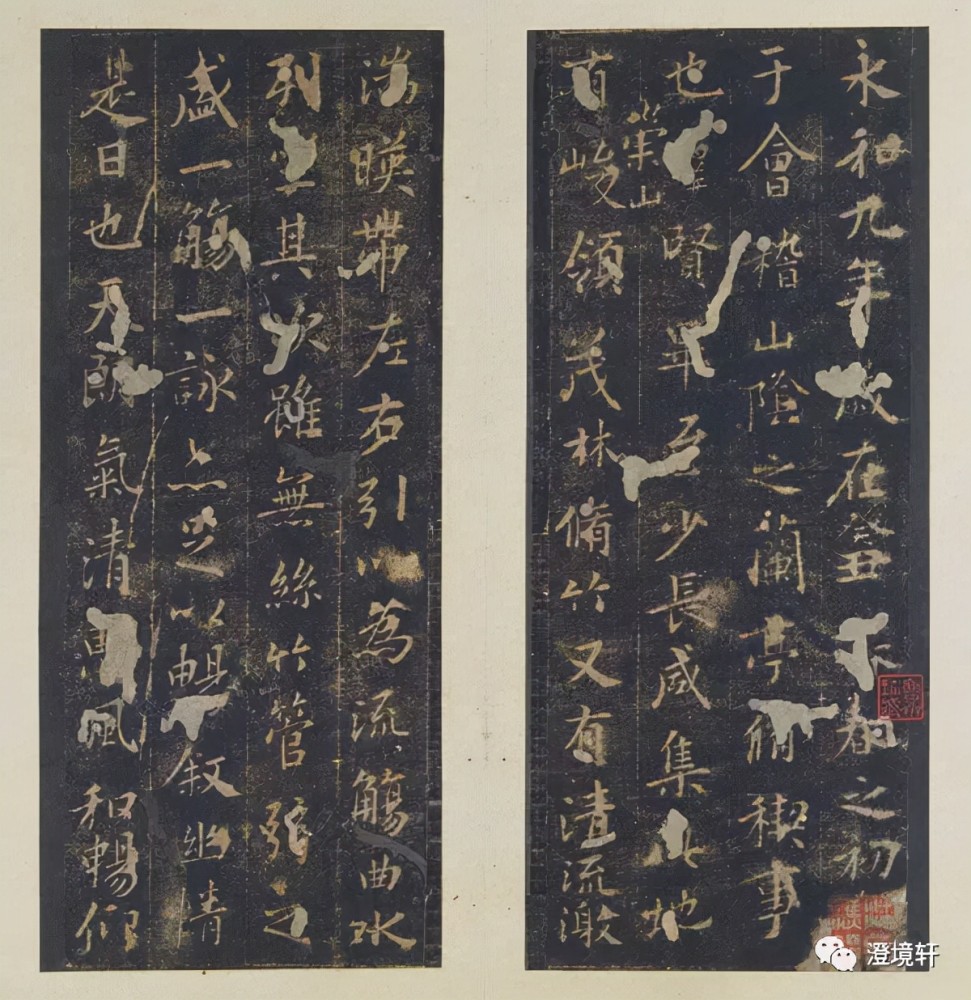 永和九年歲在癸丑暮春之初
于會稽山陰之蘭亭脩稧事
也羣賢畢至少長咸集此地
崇山
有峻領茂林脩竹又有清流激
湍暎帶左右引以為流觴曲水
列坐其次雖無絲竹管弦之
盛一觴一詠亦足以暢敘幽情
是日也天朗氣清惠風和暢仰
澄境轩